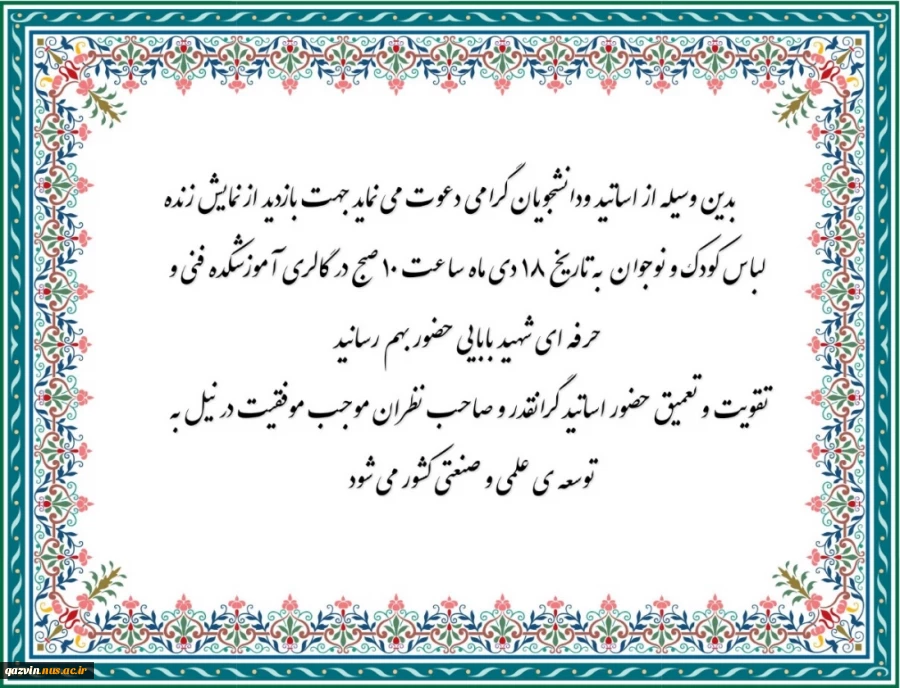 بدین وسیله از اساتید ودانشجویان گرامی دعوت می نماید جهت بازدید از نمایش زنده
لباس کودک و نوجوان به تاریخ ۱۸ دی ماه ساعت ۱۰ صبح در گالری آموزشکده فنی و
حرفه ای شهید بابایی حضور بهم رسانید
تقویت و تعمیق حضور اساتید گرانقدر و صاحب نظران موجب موفقیت در نیل به
توسعه ی علمی و صنعتی کشور می شود
qazvin.nus.ac.ir